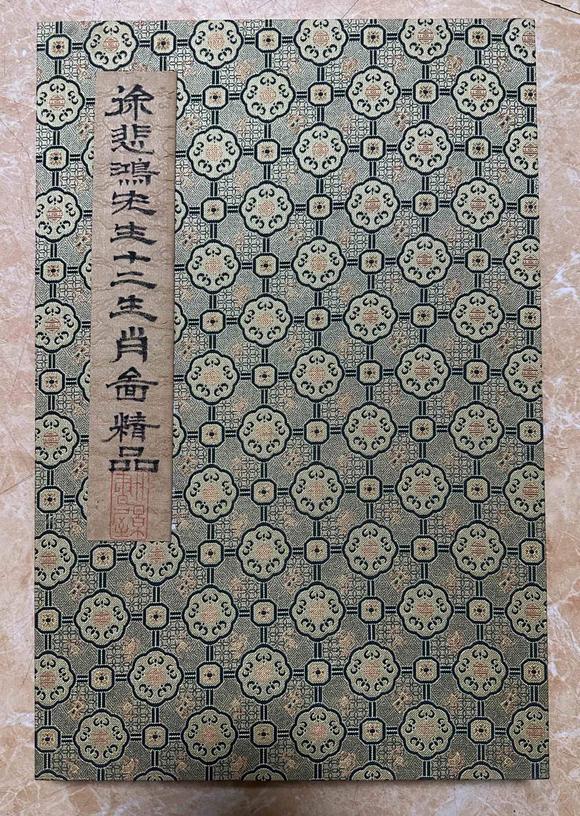 徐悲鴻先生十二生肖啚精品